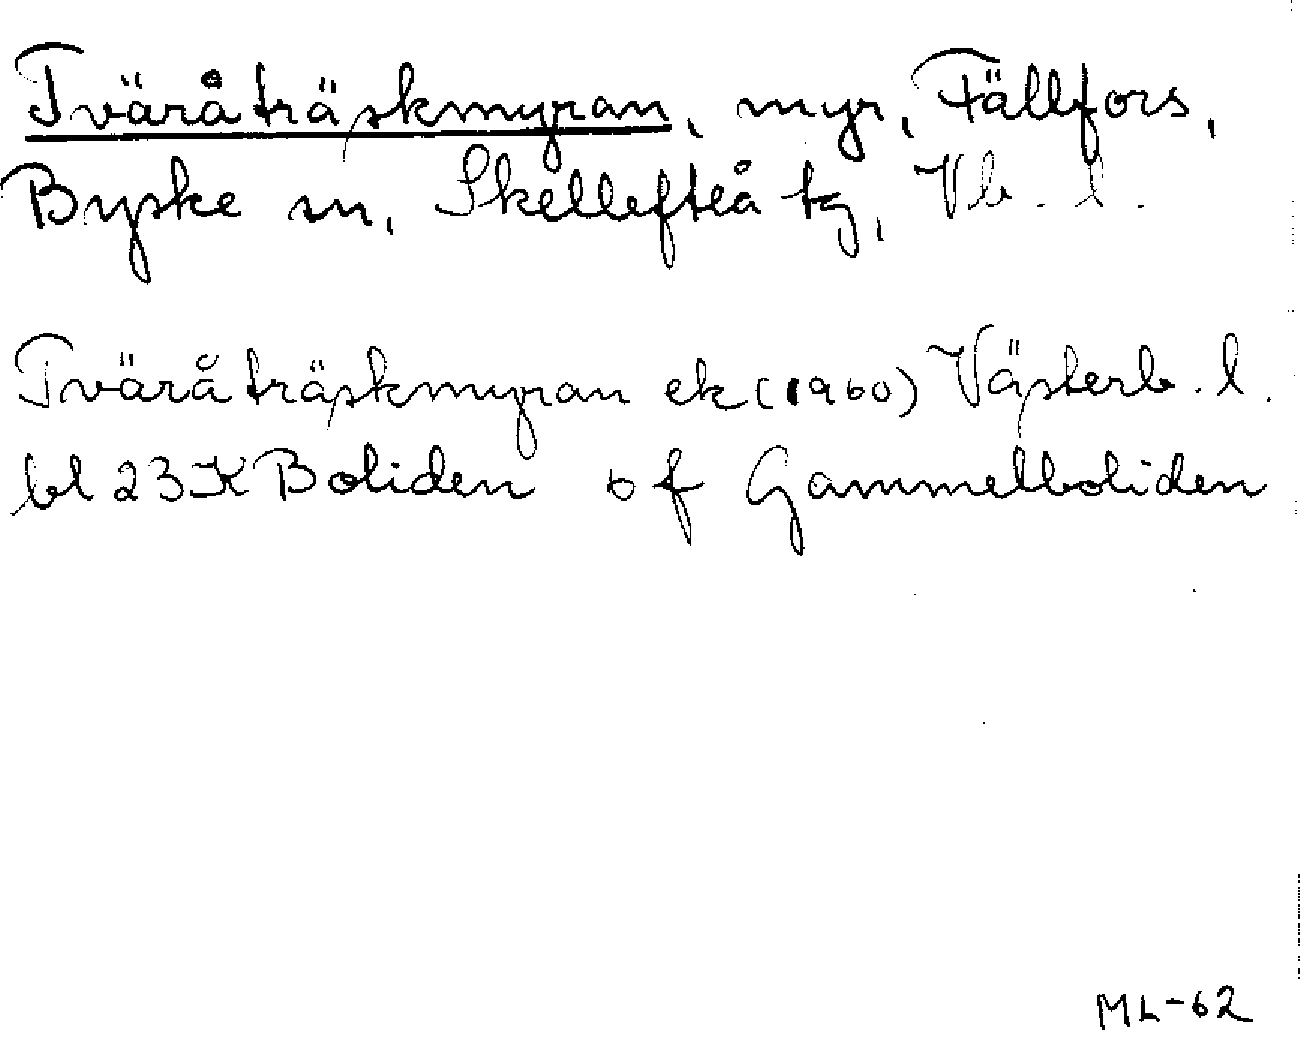 Tväråträskmyran, myr, Fällfors,
Byske sn, Skellefteå tg, Vb. l.
Tväråträskmyran ek (1960) Västerb. l.
bl 23K Boliden o f Gammelboliden
ML-62